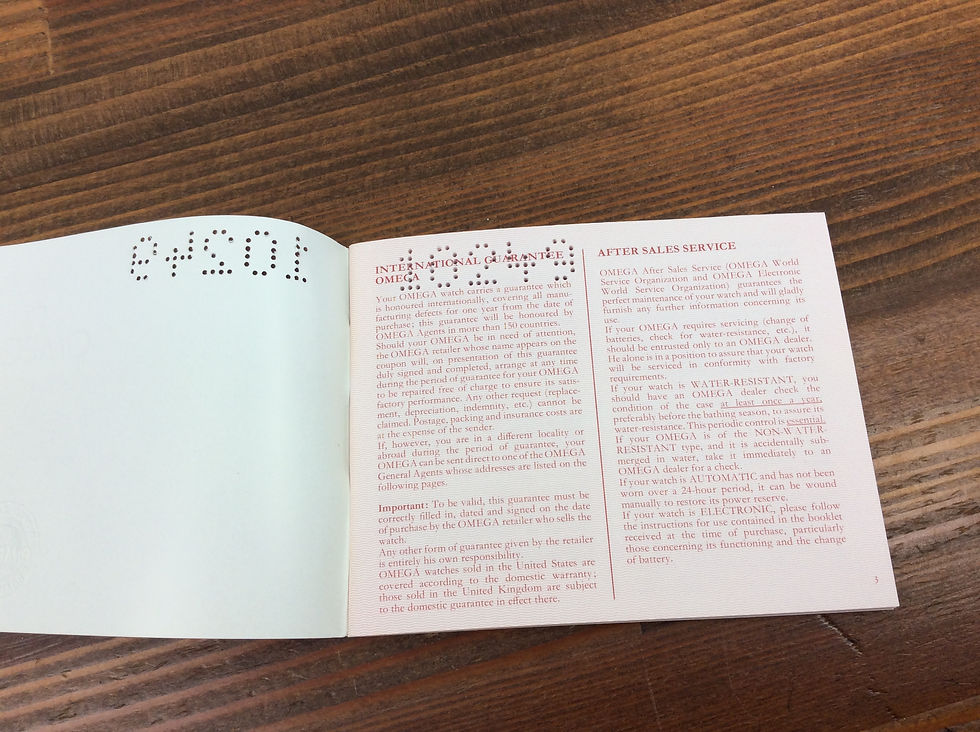 10249
INTERNATIONAL GUARANTEE
OMEGA
Your OMEGA watch carries a guarantee which
is honoured internationally, covering all manu-
facturing defects for one year from the date of
purchase; this guarantee will be honoured by
OMEGA Agents in more than 150 countries.
Should your OMEGA be in need of attention,
the OMEGA retailer whose name appears on the
coupon will, on presentation of this guarantee
duly signed and completed, arrange at any time
during the period of guarantee for your OMEGA
to be repaired free of charge to ensure its satis-
factory performance. Any other request (replace-
ment, depreciation, indemnity, etc.) cannot be
claimed. Postage, packing and insurance costs are
at the expense of the sender.
If, however, you are in a different locality or
abroad during the period of guarantee, your
OMEGA can be sent direct to one of the OMEGA
General Agents whose addresses are listed on the
following pages.
Important: To be valid, this guarantee must be
correctly filled in, dated and signed on the date
of purchase by the OMEGA retailer who sells the
watch.
Any other form of guarantee given by the retailer
is entirely his own responsibility.
OMEGA watches sold in the United States are
covered according to the domestic warranty;
those sold in the United Kingdom are subject
to the domestic guarantee in effect there.
AFTER SALES SERVICE
OMEGA After Sales Service (OMEGA World
Service Organization and OMEGA Electronic
World Service Organization) guarantees the
perfect maintenance of your watch and will gladly
furnish any further information concerning its
use.
If your OMEGA requires servicing (change of
batteries, check for water-resistance, etc.), it
should be entrusted only to an OMEGA dealer.
He alone is in a position to assure that your watch
will be serviced in conformity with factory
requirements.
If your watch is WATER-RESISTANT, you
should have an OMEGA dealer check the
condition of the case at least once a year,
preferably before the bathing season, to assure its
water-resistance. This periodic control is essential.
If your OMEGA is of the NON-WATER-
RESISTANT type, and it is accidentally sub-
merged in water, take it immediately to an
OMEGA dealer for a check.
If your watch is AUTOMATIC and has not been
worn over a 24-hour period, it can be wound
manually to restore its power reserve.
If your watch is ELECTRONIC, please follow
the instructions for use contained in the booklet
received at the time of purchase, particularly
those concerning its functioning and the change
of battery.
3